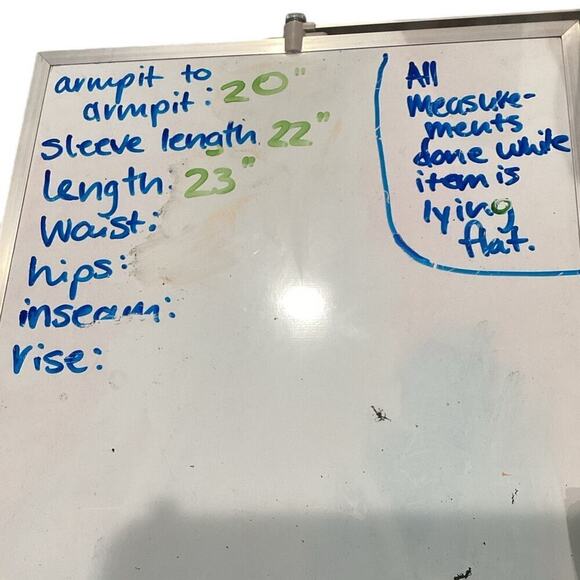 armpit to
armpit: 20"
sleeve length 22"
Length: 23"
Waist:
hips:
inseam:
rise:
All
measure-
ments
done while
item is
lying
flat.